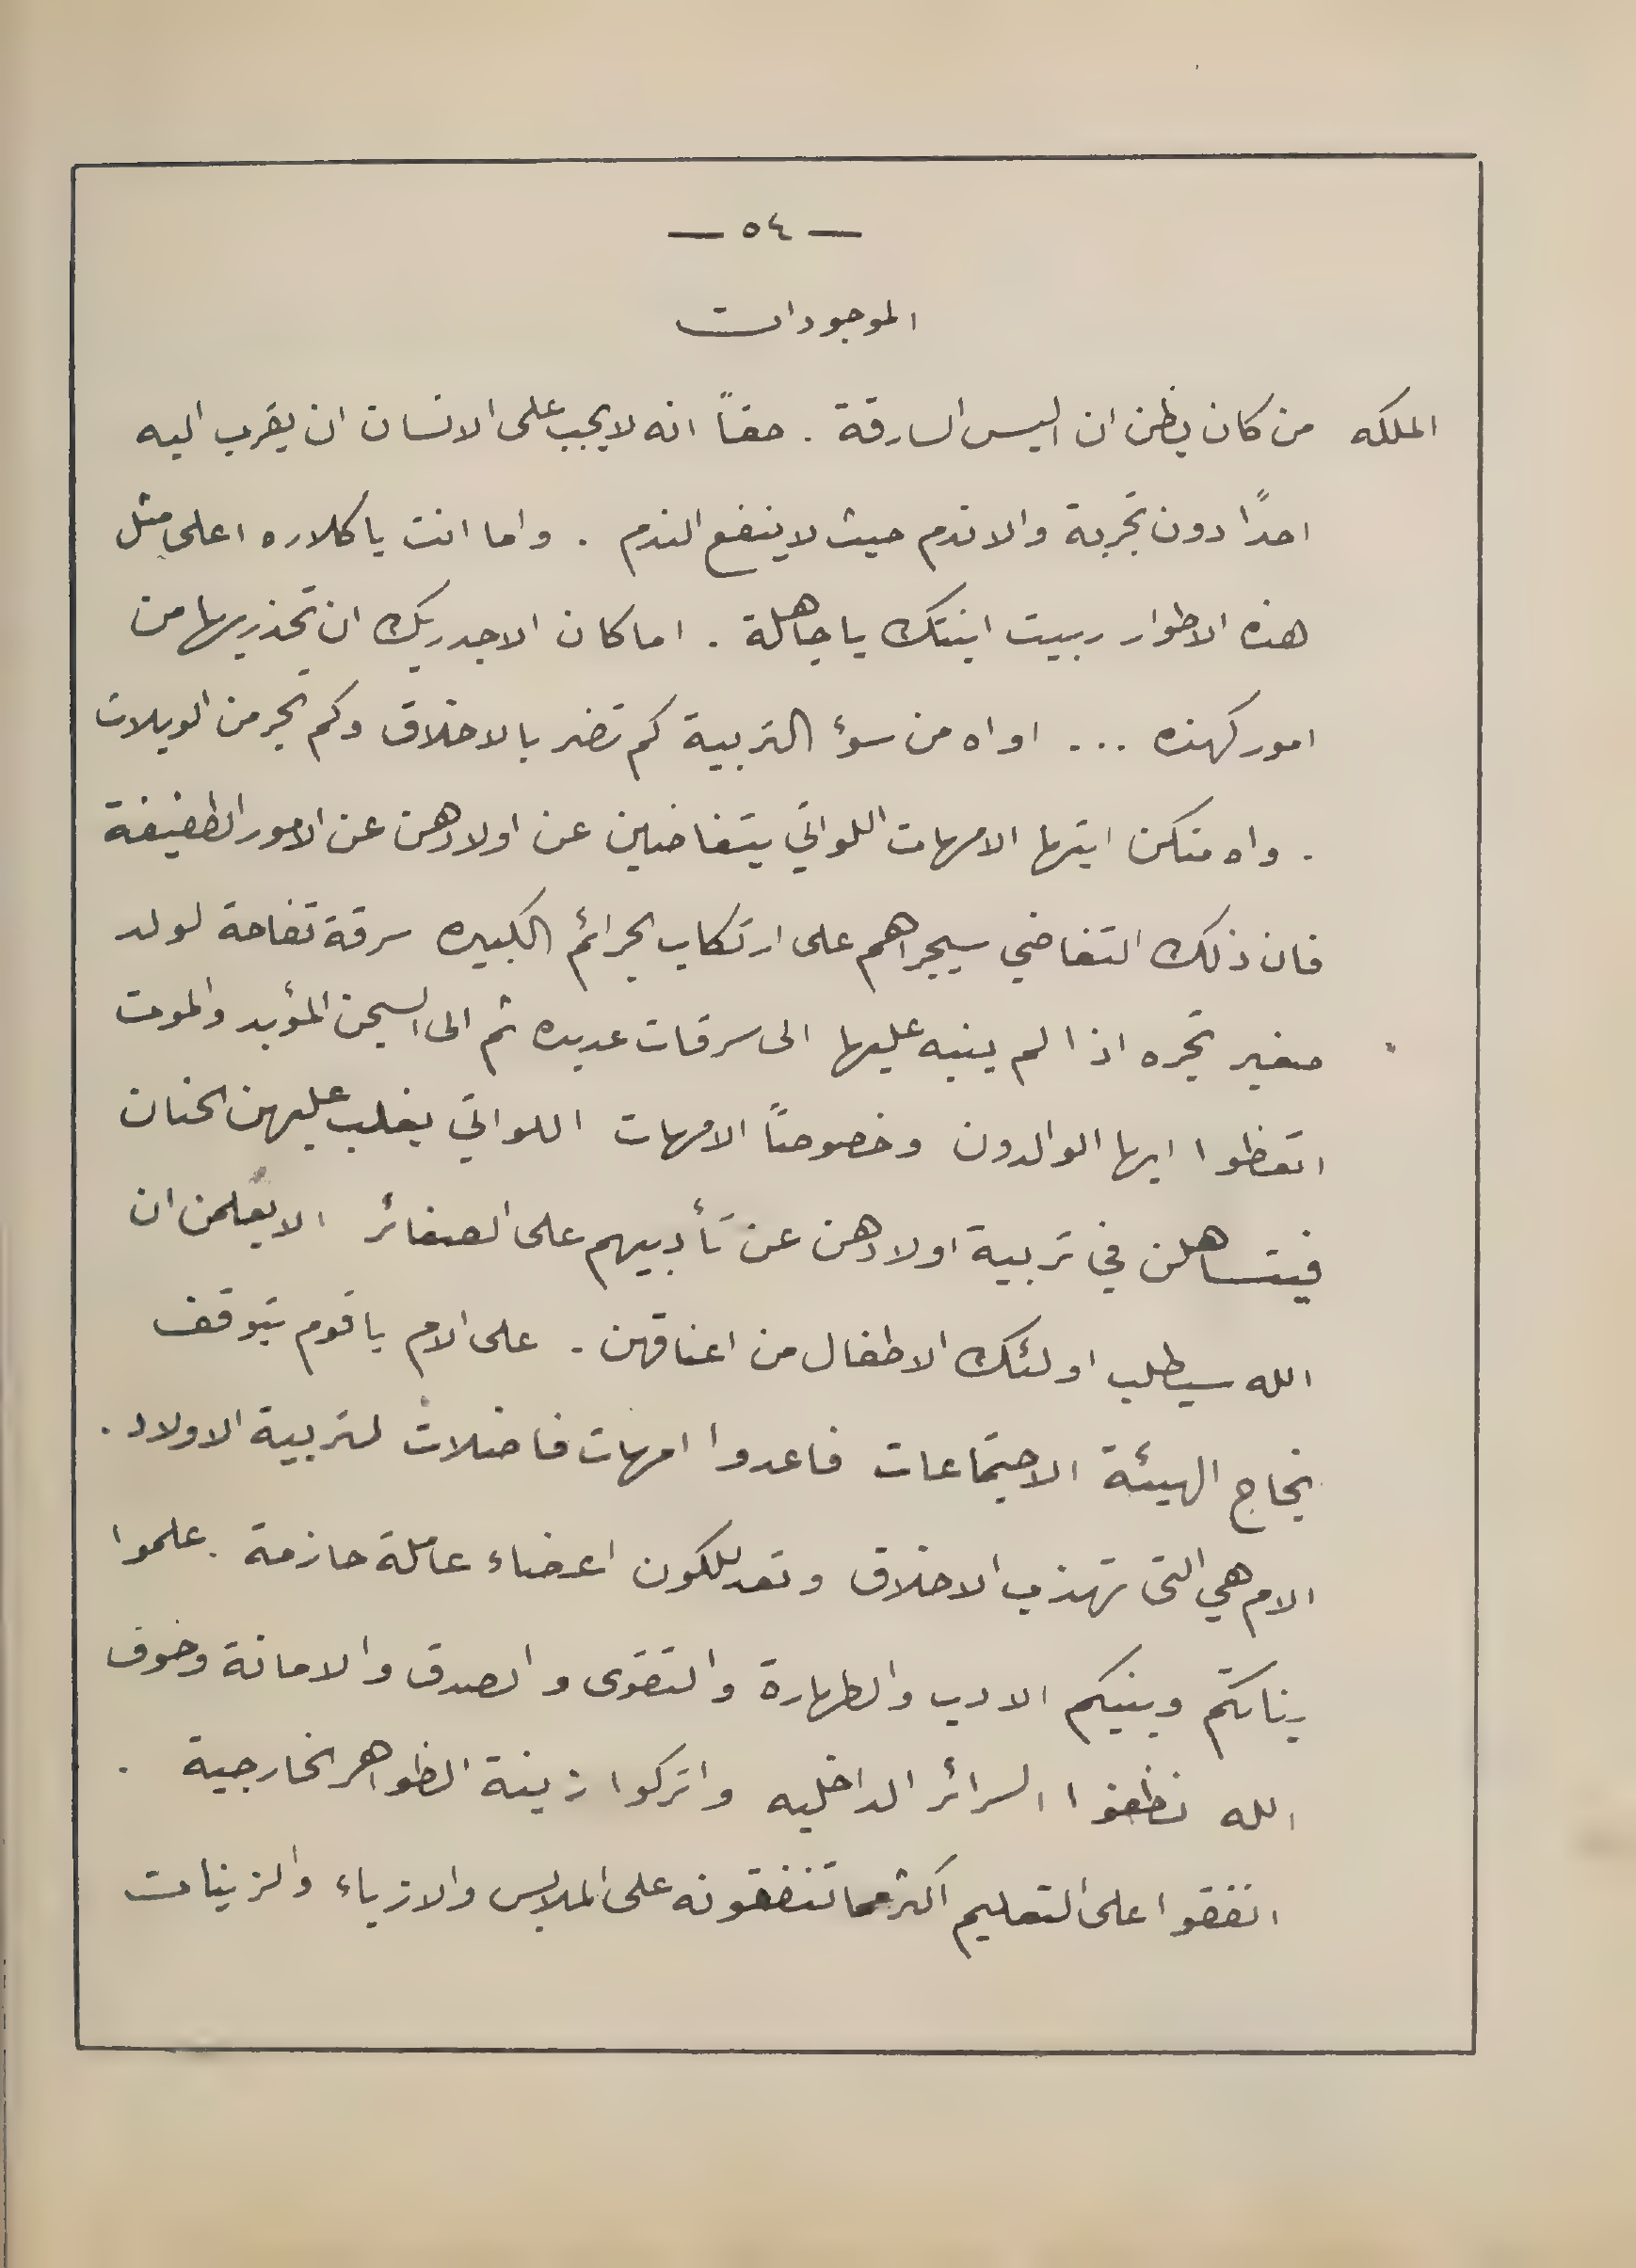 — ٥٤ —
الموجودات
الملكه من كان يظن ان اليس السارقة . حقاً انه لا يجب على الانسان ان يقرب اليه
احدًا دون تجربة والا ندم حيث لا ينفع الندم . واما انت يا كلاره اعلى مثل
هذه الاطوار ربيت ابنتك يا جاهلة . اما كان الاجدر بك ان تحذريها من
امور كهذه ... اواه من سؤ التربية كم تضر بالاخلاق وكم تجر من الويلات
. واه منكن ايتها الامهات اللواتي يتغاضين عن اولادهن عن الامور الطفيفة
فان ذلك التغاضي سيجراهم على ارتكاب الجرائم الكبيره سرقة تفاحة لولد
صغير تجره اذا لم ينبه عليها الى سرقات عديده ثم الى السجن المؤبد والموت
اتعظوا ايها الوالدون وخصوصاً الامهات اللواتي يغلب عليهن الحنان
فيتساهلن في تربية اولادهن عن تأديبهم على الصغائر الا يعلمن ان
الله سيطلب اولئك الاطفال من اعناقهن . على الام يا قوم يتوقف
نجاح الهيئة الاجتماعات فاعدوا امهات فاضلات لتربية الاولاد .
الام هي التى تهذب الاخلاق وتعد للكون اعضاء عاملة حازمة . علموا
بناتكم وبنيكم الادب والطهارة والتقوى والصدق والامانة وخوف
الله نظفوا السرائر الداخليه واتركوا زينة الظواهر الخارجية .
انفقوا على التعليم اكثر مما تنفقونه على الملابس والازياء والزينات